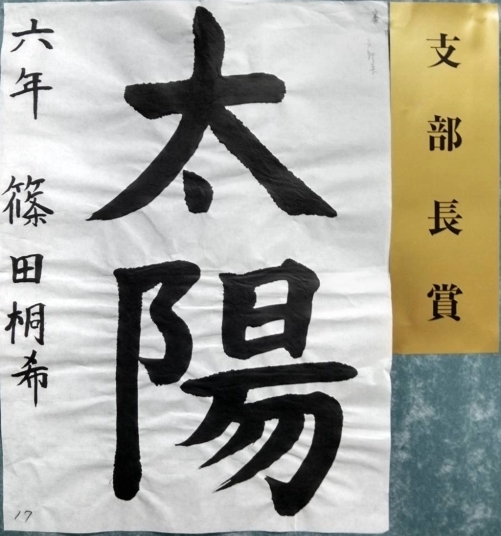 支部長賞
太陽
六年 篠田桐希
17